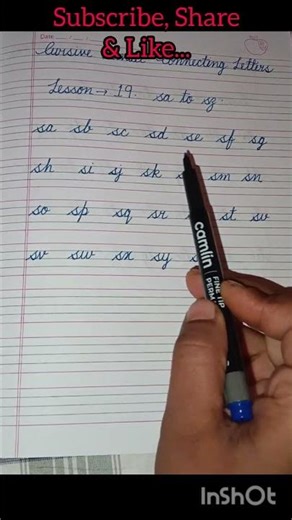 Subscribe, Share
& Like...
Date
Cursive Connecting Letters
Lesson → 19. sa to sz.
sa sb sc sd se sf sg
sh si sj sk sm sn
so sp sq sr st su
sv sw sx sy
camlin
FINE TIP
PERM
InShOt